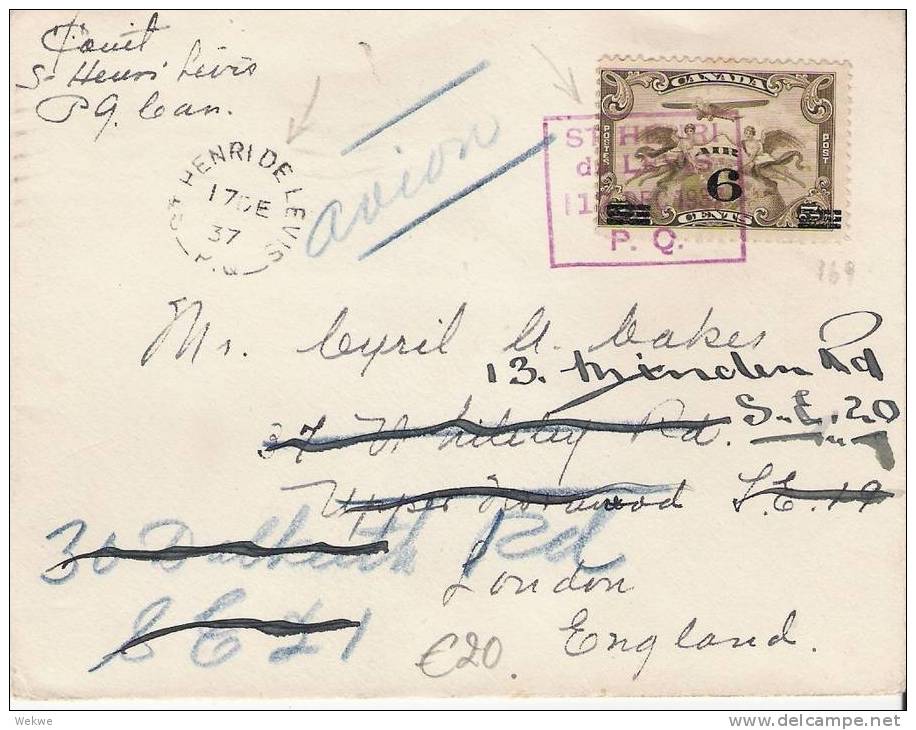 St Henri Lévis
P Q. Can.
ST HENRI DE LEVIS
17 DE
37
P.Q.
avion
CANADA
POSTES POST
AIR
6
CENTS
ST. HENRI
de LEVIS
P. Q.
169
Mr. Cyril A. Cakes
13. Minden Rd
S.E. 20
37 Whiteley Rd.
Upper Norwood S.E. 19
30 Dalkeith Rd
S E 21
London
England.
€20
Wekwe
delcampe.net